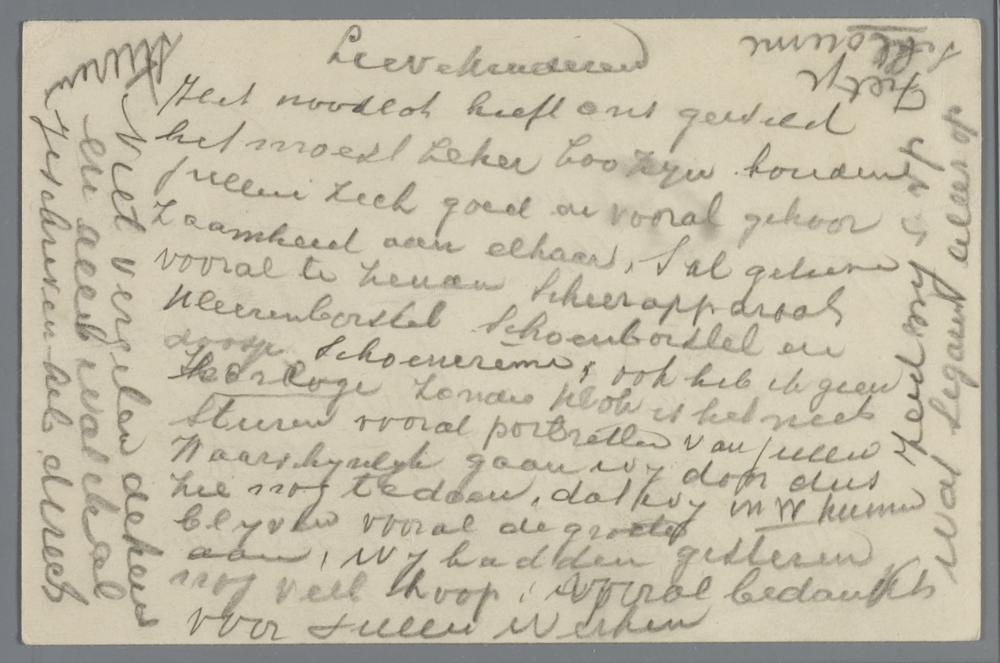 Lieve kinderen
Het noodlot heeft ons gewild
het moest zeker zoo zyn houden
jullie zich goed en vooral gehoor
zaamheid aan elkaar, Sal gelieve
vooral te zenden Scheerapparaat
kleerenborstel Schoenborstel en
doosje Schoencreme, ook heb ik geen
Horloge zonder klok is het niets
Sturen vooral portretten van jullie
Waarschynlyk gaan wy door dus
hie nog te doen, dat wy in W kunnen
blyven vooral de groeten
aan, wy hadden gisteren
nog veel hoop, vooral bedankt
voor jullie werken
Niet vergeten dekens
en alles wat ik al
geschreven heb direct
sturen
zend my
wat Segaret alles op
Fietje